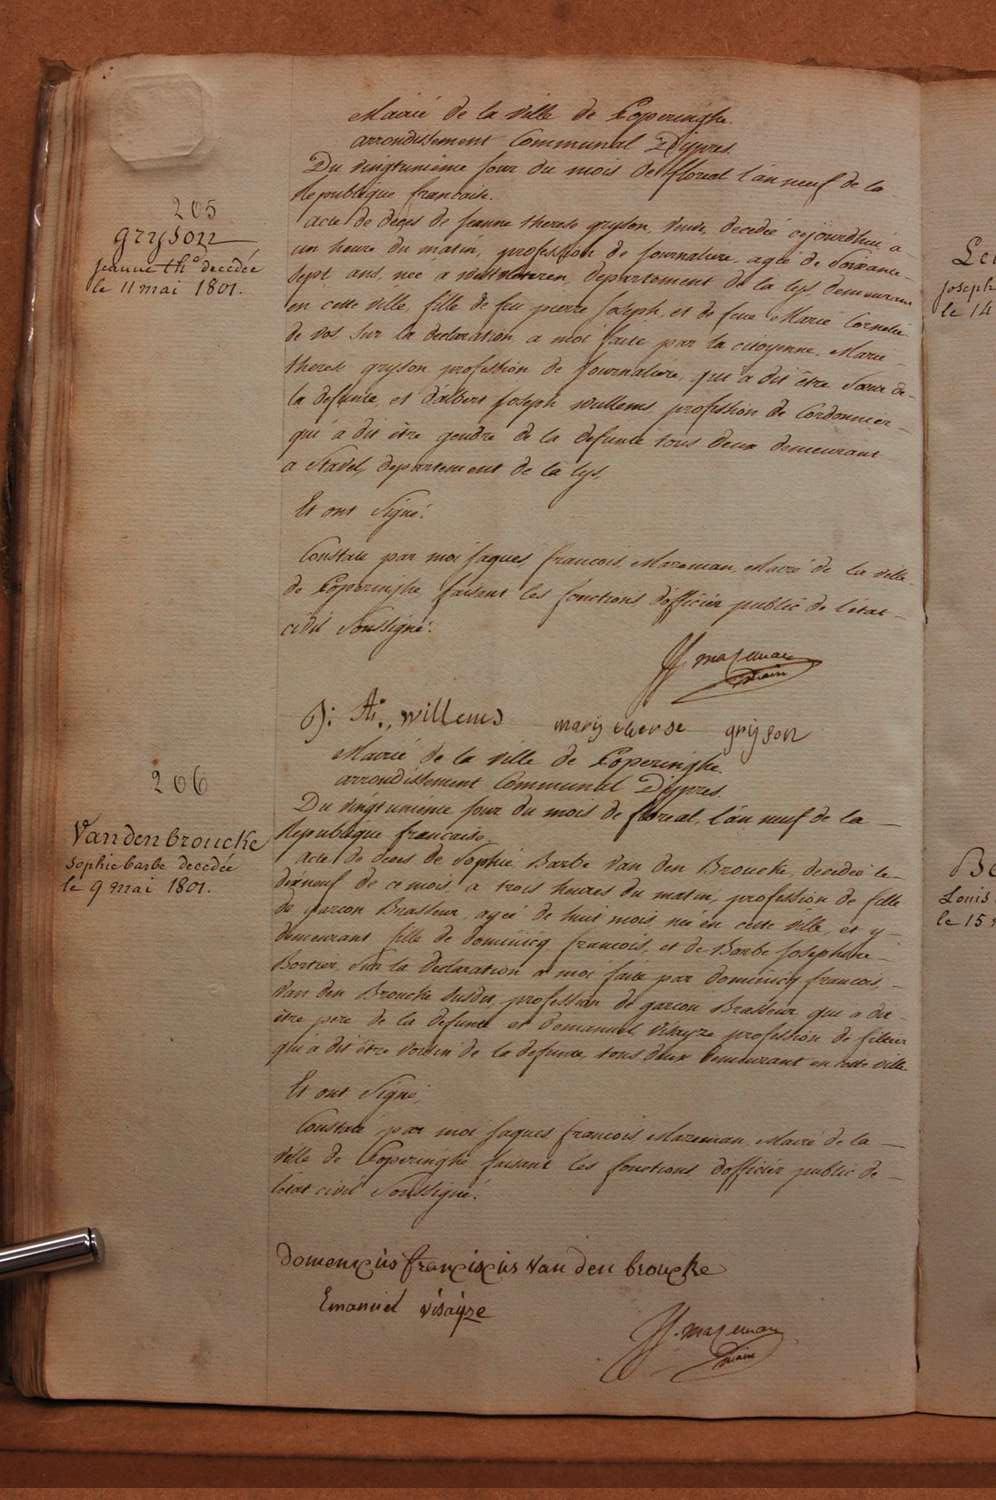 Mairie de la ville de Poperinghe.
arrondissement Communal D'ypres.
Du vingtunième jour du mois de floreal l'an neuf de la
Republique francaise.
205
gryson
jeanne th.e decedée
le 11 mai 1801.
acte de deces de jeanne therese gryson, veuve, decedée cejourdhui à
un heure du matin, profession de journaliere, agée de soixante
sept ans, née a westvleteren, departement de la lys, demeurant
en cette ville, fille de feu pierre joseph, et de feue Marie Cornelie
de vos sur la declaration a moi faite par la citoyenne Marie
therese gryson profession de journaliere, qui a dit être soeur de
la defunte, et d'albert joseph willems, profession de Cordonnier
qui a dit être gendre de la defunte tous deux demeurant
a Stavel, departement de la lys,
Et ont signé.
Constaté par moi jaques francois Mazeman Maire de la ville
de Poperinghe faisant les fonctions d'officier public de l'etat
civil soussigné.
JJ. mazeman
maire
willems marij therese grijson
206
Vandenbroucke
sophie barbe decedée
le 9 mai 1801.
Mairie de la ville de Poperinghe.
arrondissement Communal D'ypres
Du vingtunième jour du mois de floreal, l'an neuf de la
Republique francaise.
acte de deces de Sophie Barbe Van den Broucke, decedée le
dixneuf de ce mois, a trois heures du matin, profession de fille
de garcon Brasseur, agée de huit mois, née en cette ville, et y
demeurant fille de dominicq francois, et de Barbe Josephine
Bortier, sur la declaration a moi faite par dominicq francois
Van den Broucke susdit, profession de garcon Brasseur, qui a dit
être pere de la defunte et d'emanuel visayze profession de fileur
qui a dit être voisin de la defunte, tous deux demeurant en cette ville
Et ont signé,
Constaté par moi jaques francois Mazeman Maire de la
ville de Poperinghe faisant les fonctions d'officier public de
letat civil soussigné.
domenicus franciscus Van den broucke
Emanuel visayze
JJ. mazeman
maire
joseph
le 14
Louis
le 15